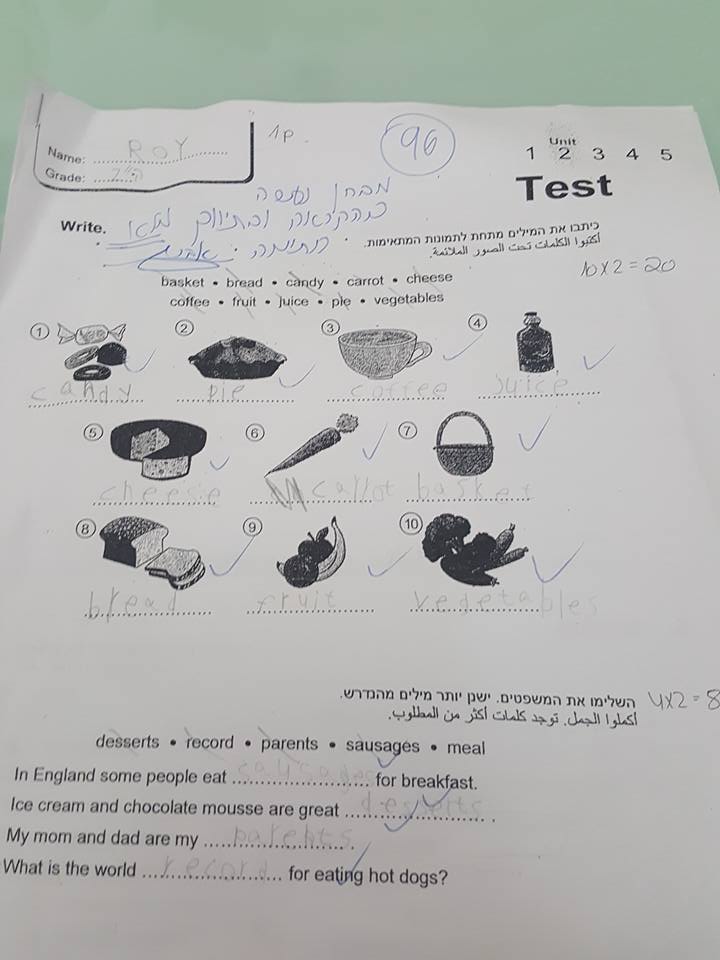 Name: ROY
Grade:
96
Unit
1 2 3 4 5
Test
מבחן נעשה
בהקראה ובתיווך מלא
Write.
כיתבו את המילים מתחת לתמונות המתאימות.
أكتبوا الكلمات تحت الصور الملائمة.
10x2=20
basket • bread • candy • carrot • cheese
coffee • fruit • juice • pie • vegetables
1 2 3 4
candy pie coffee juice
5 6 7
cheese callot basket
8 9 10
bread fruit vedetables
השלימו את המשפטים. ישנן יותר מילים מהנדרש.
4x2=8
أكملوا الجمل. توجد كلمات أكثر من المطلوب.
desserts • record • parents • sausages • meal
In England some people eat sausages for breakfast.
Ice cream and chocolate mousse are great desserts.
My mom and dad are my parents.
What is the world record for eating hot dogs?